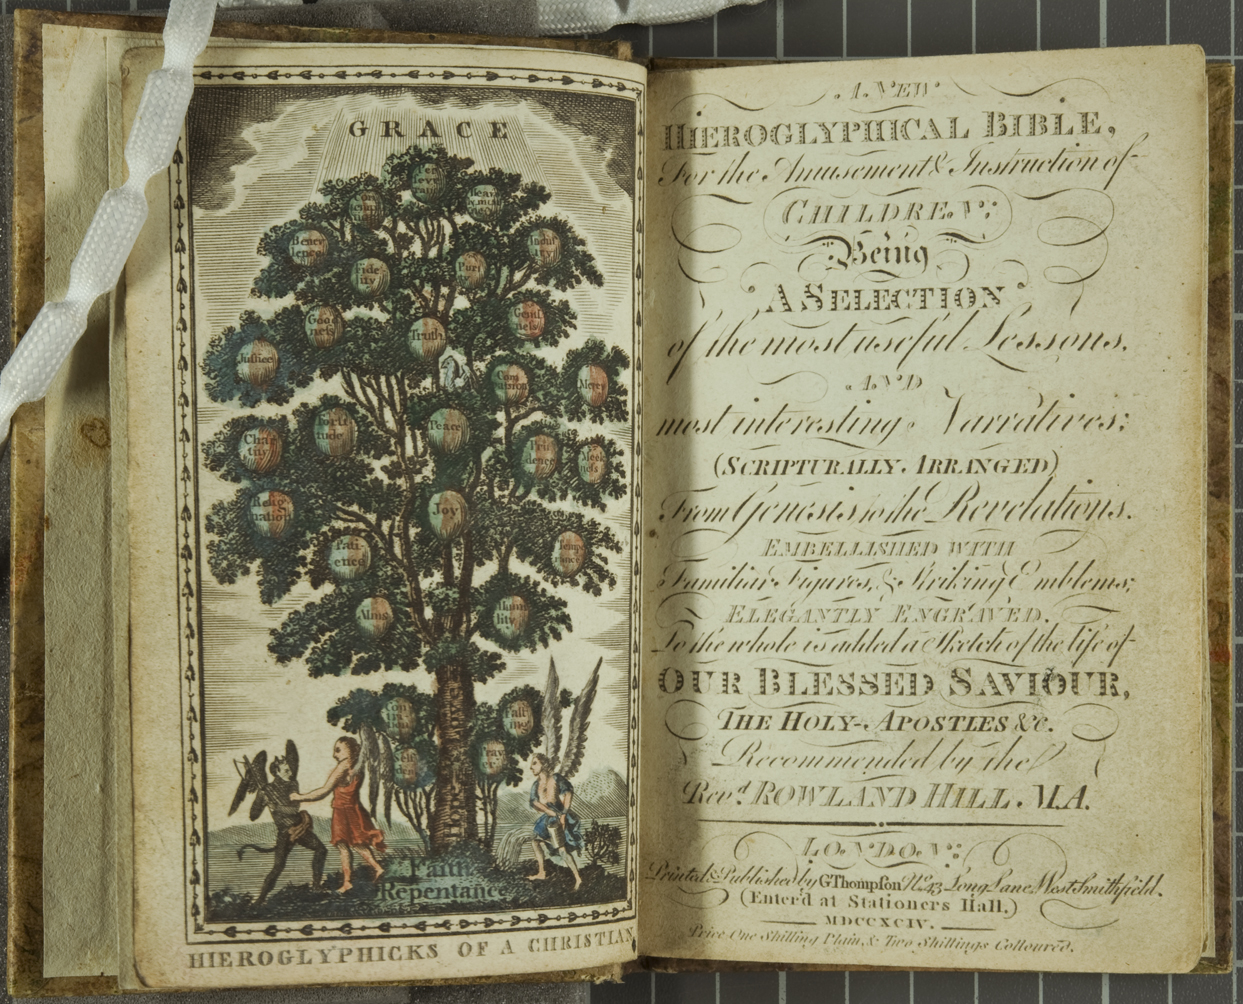 GRACE
Per
seve
rance
Heav
Bene
lence
Fide
ity
Puri
ty
Indus
try
Good
ness
Gent
ness
Truth
Justice
Com
Mercy
Chas
tity
Forti
tude
Peace
Pru
dence
Meek
ness
Resig
nation
Joy
Pati
ence
Tempe
rance
Alms
Humi
lity
Fast
ing
Pray
Faith
Repentance
HIEROGLYPHICKS OF A CHRISTIAN
A NEW
HIEROGLYPHICAL BIBLE,
For the Amusement & Instruction of
CHILDREN:
Being
A SELECTION
of the most useful Lessons,
AND
most interesting Narratives;
(SCRIPTURALLY ARRANGED)
From Genesis to the Revelations.
EMBELLISHED WITH
Familiar Figures, & Striking Emblems;
ELEGANTLY ENGRAVED.
To the whole is added a Sketch of the life of
OUR BLESSED SAVIOUR,
THE HOLY APOSTLES &c.
Recommended by the
Revd. ROWLAND HILL. M.A.
LONDON:
Printed & Published by G Thompson No. 43 Long Lane West Smithfield.
(Enter'd at Stationers Hall.)
MDCCXCIV.
Price One Shilling Plain, & Two Shillings Colloured.